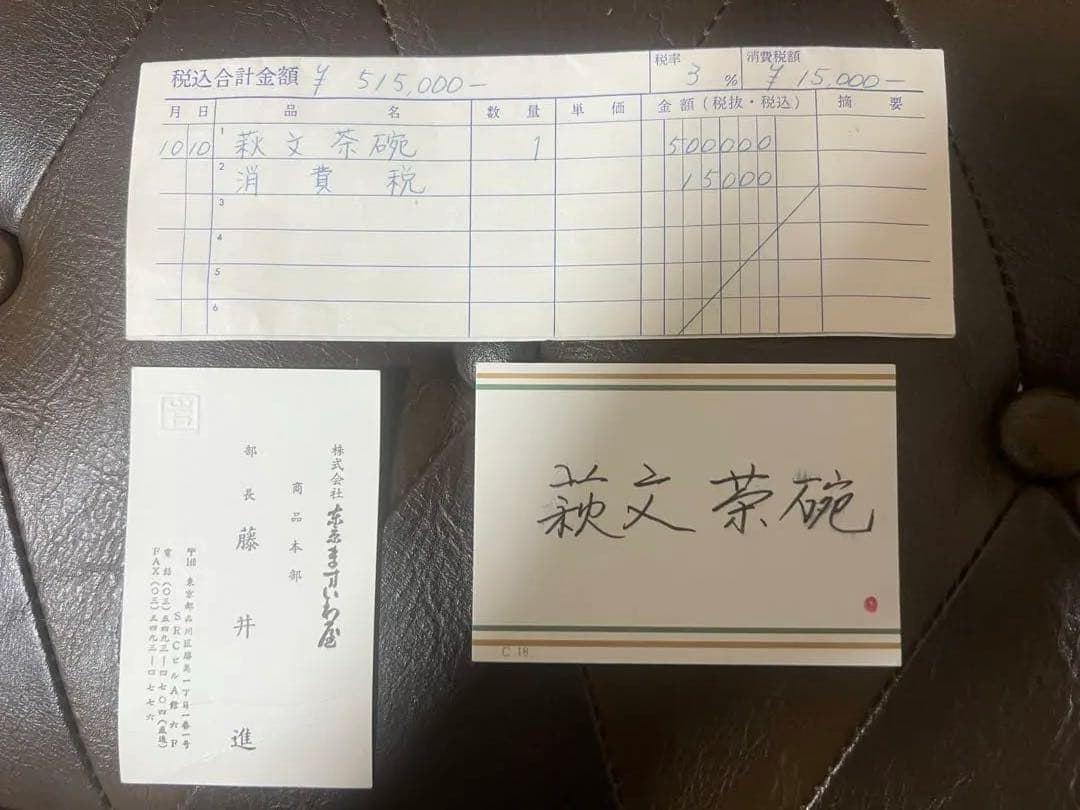 税込合計金額 ¥ 515,000−
税率 3 %
消費税額 ¥ 15,000−
月 日 品 名 数 量 単 価 金 額 (税抜・税込) 摘 要
10 10 1 萩文茶碗 1 500000
2 消費税 15000
3
4
5
6
株式会社 東京ますいわ屋
商品本部
部長 藤井 進
東京都品川区勝島一丁目一番一号
SRCビルA館六F
電話(〇三)五四九三―四七〇四(直通)
FAX(〇三)五四九三―四七七六
萩文茶碗
C 18